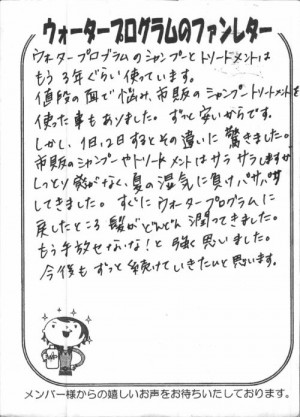 ウォータープログラムのファンレター
ウォータープログラムのシャンプーとトリートメントは
もう3年ぐらい使っています。
値段の面で悩み、市販のシャンプートリートメントを
使った事もありました。ずっと安いからです。
しかし、1日、2日するとその違いに驚きました。
市販のシャンプーやトリートメントはサラサラしますが
しっとり感がなく、夏の湿気に負けパサパサ
してきました。すぐにウォータープログラムに
戻したところ髪がどんどん潤ってきました。
もう手放せないな!と強く思いました。
今後もずっと続けていきたいと思います。
メンバー様からの嬉しいお声をお待ちいたしております。